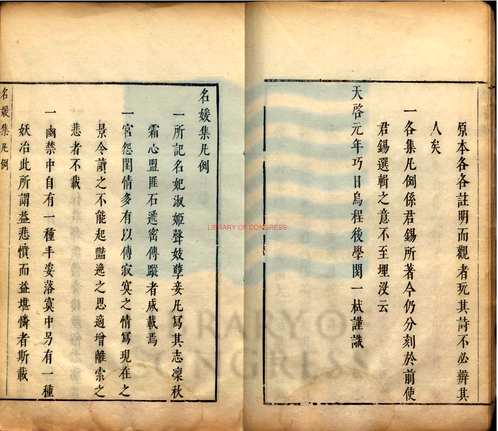 原本各各註明而觀者玩其詩不必辨其
人矣
一各集凡例係君錫所著今仍分刻於前使
君錫選輯之意不至埋沒云
天啓元年巧日烏程後學閔一栻謹識
名媛集凡例
一所記名妃淑姬聲妓孽妾凡寫其志凜秋
霜心盟匪石遞密傳蹤者咸載焉
一宮怨閨情多有以傳寂寞之情寫現在之
景令讀之不能起豔逸之思適增離索之
悲者不載
一幽禁中自有一種手姿落寞中另有一種
妖冶此所謂益悲憤而益堪憐者斯載
名媛集凡例
LIBRARY OF CONGRESS
LIBRARY OF
CONGRESS